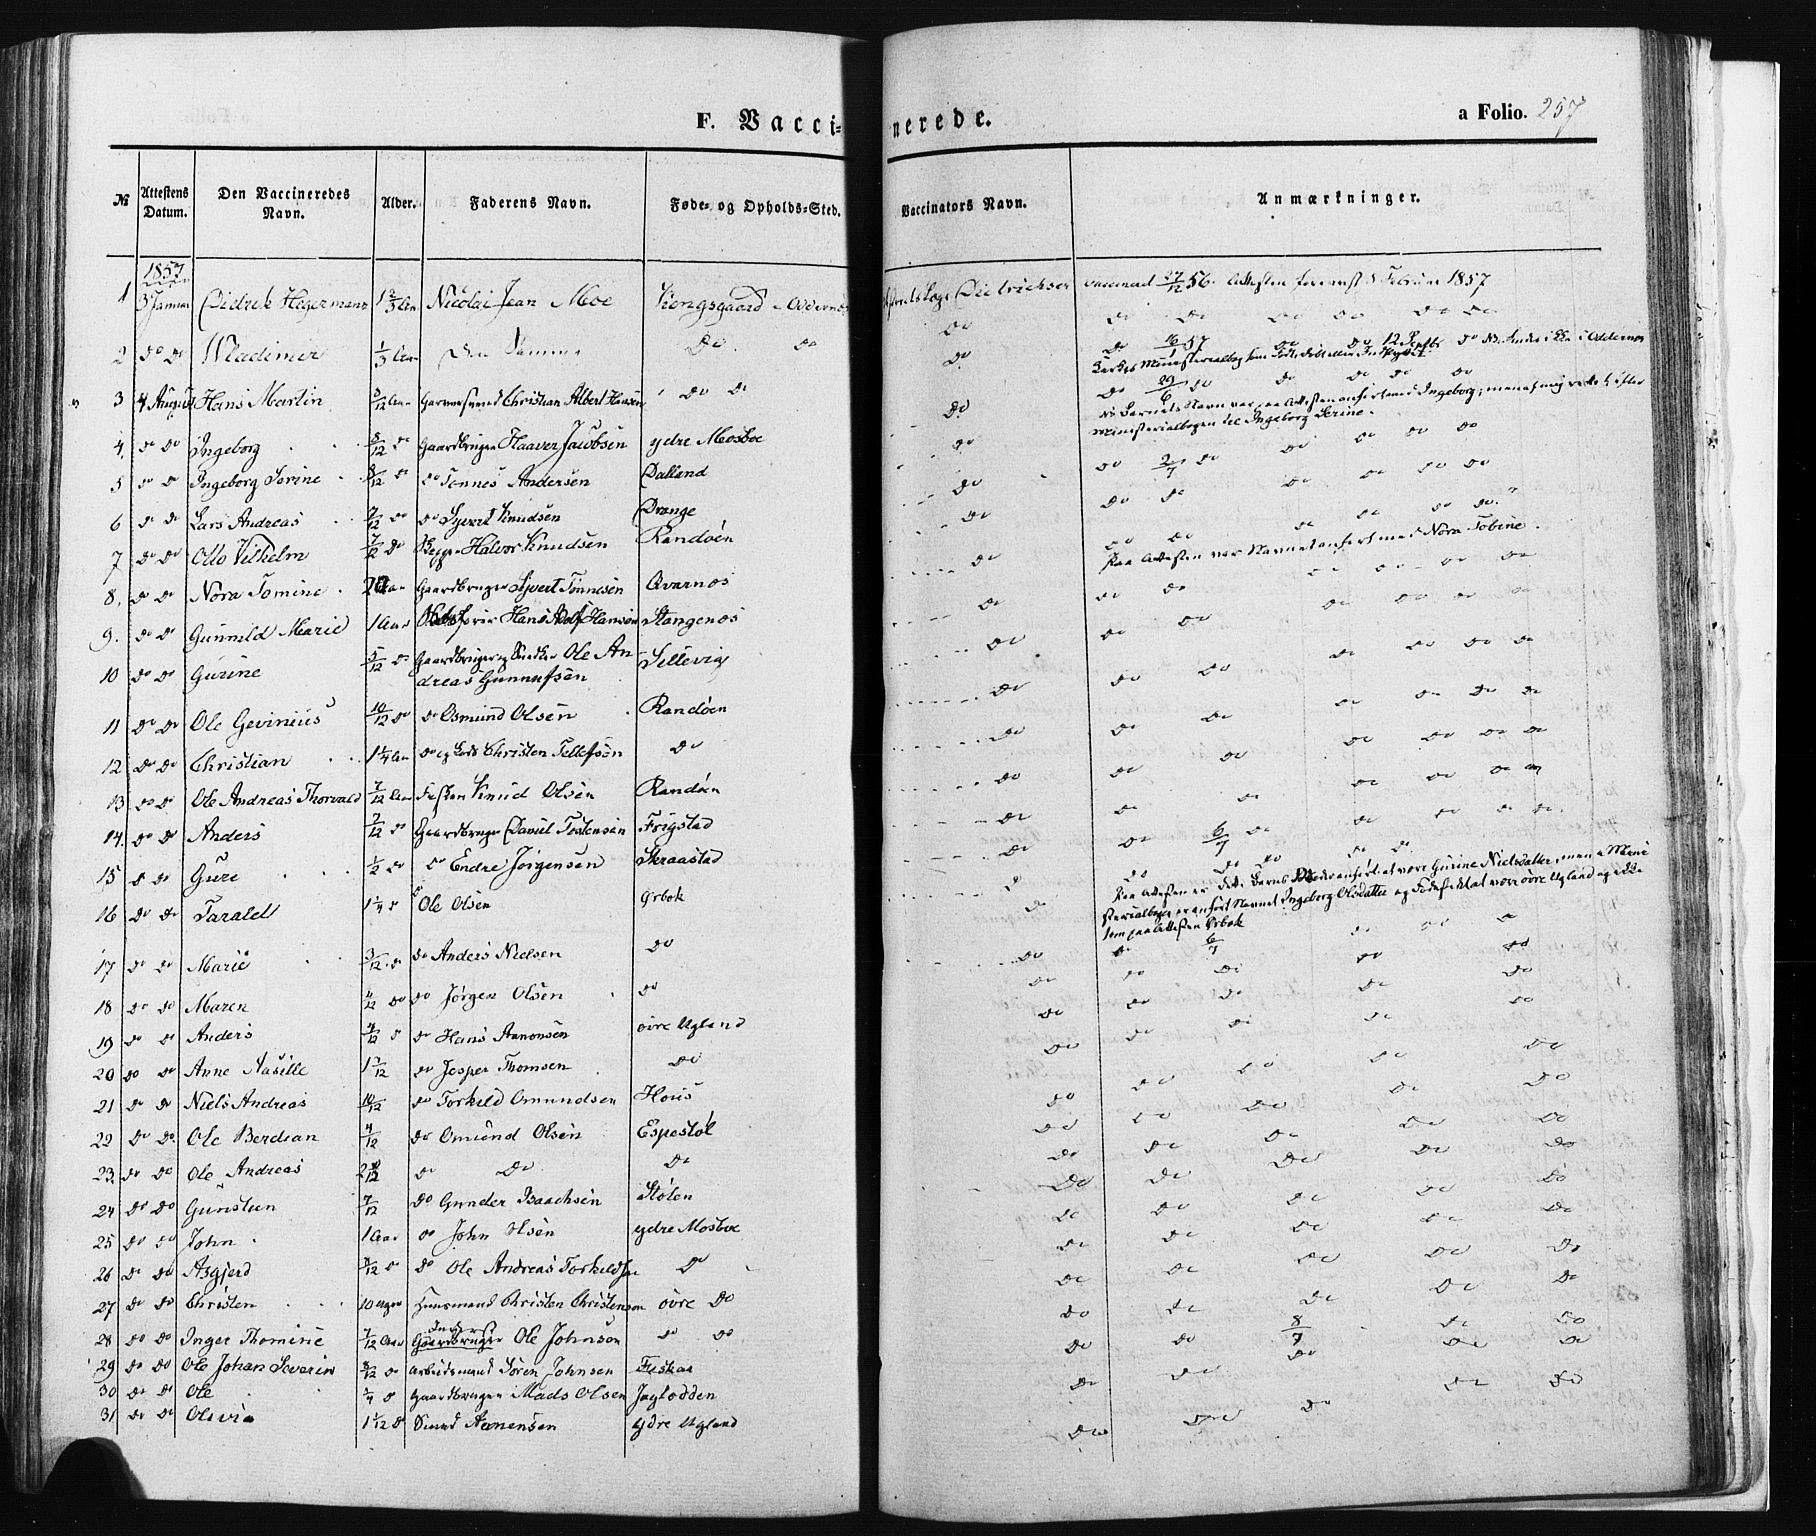 F. Vaccinerede. a Folio. 257
№ Attestens Datum. Den Vaccineredes Navn. Alder. Faderens Navn. Føde- og Opholds-Sted. Vaccinators Navn. Anmærkninger.
1857
1 3 Januar Didrik Hegermann 1 2/3 Aar Nicolai Jean Moe Kongsgaard Oddernes Dietrichsen vaccineret 27/12 56. Attesten foreviist Februar 1857
2 do do Wladimir 1/3 Aar Den Samme do do do do do do do do do
3 4 August Hans Martin /12 Aar Christian Albert Hansen do do do do 16/1 57 do do 12 Septbr do NB. Andes i Oddernes
Kirkes Ministerialbog
4. do do Ingeborg 8/12 do Gaardbruger Haaver Jacobsen ydre Mosboe do do 29/6 do do do do do
Barnets Navn var paa Attesten anført med Ingeborg; men af mig rettet efter
Ministerialbogen til Ingeborg Serine.
5 do do Ingeborg Serine 8/12 do do Tønnes Andersen Dalland do do 2/7 do do do do do
6 do do Lars Andreas 7/12 do do Syvert Knudsen Drange do do do do do do do
7 do do Otto Vilhelm 7/12 do Halvor Knudsen Randøen do do do do do do do
Paa Attesten var Navnet anført med Nora Tobine.
8. do do Nora Tomine Aar Gaardbruger Syvert Tønnesen Qvarnes do do do do do do do
9. do do Gunnild Marie 1 Aar Hans Adolf Hansen Stangenes do do do do do do do
10 do do Gurine 5/12 do Gaardbruger og Snedker Ole An
dreas Gunnufsen Sellevig do do do do do do do
11 do do Ole Gevinius 10/12 do do Osmund Olsen Randøen do do do do do do do
12 do do Christian 1 1/4 Aar do og Lods Christen Tellefsen do do do do do do do do
13 do do Ole Andreas Thorvald 7/12 Aar Fisker Knud Olsen Randøen do do do do do do do
14. do do Anders 7/12 do Gaardbruger Daniel Tostensen Frigstad do do do do do do do
15 do do Gure 1/2 do do Endre Jørgensen Skraastad do do 6/7 do do do do do
16 do do Tarald 1 1/4 do do Ole Olsen Ørbok do do do do do do
Paa Attesten er dette Barns Moder anført at være Gurine Nielsdatter, men i Mini
sterialbogen er anført Navnet Ingeborg Olsdatter og Fødestedet at være øvre Ugland og ikke
som paa Attesten Ørbok
17 do do Marie 3/12 do do Anders Nielsen do do do 6/7 do do do
18 do do Maren 4/12 do do Jørgen Olsen do do do do do do
19 do do Anders /12 do do Hans Aanonsen øvre Ugland do do do do do
20 do do Anne Aasille 1 /12 do Jesper Thomsen do do do do do do
21 do do Niels Andreas 10/12 do Torkild Omundsen Hous do do do do do
22 do do. Ole Berdian 4/12 do Omund Olsen Espestøl do do do do do
23. do do Ole Andreas 2 /12 do do do do do do do do
24 do do Gunstun 7/12 do Gunder Isaachsen Stølen do do do do do
25 do do John 1 Aar do John Olsen ydre Mosboe do do do do do
26 do do Asgjerd /12 do do Ole Andreas Torkilds. do do do do do do
27 do do Christen 10 Uger Huusmand Christen Christensen øvre do do do do do do
28 do do Inger Thomine 7/12 Aar Inderst Gaardbruger Ole Johnsen do do do do 8/7 do do
29 do do Ole Johan Severin 8/12 do Arbeidsmand Søren Johnsen Fiskaa do do do do do
30 do do Ole 3/4 do Gaardbruger Mads Olsen Jaglodden do do do do do
31 do do Olivia 1 1/12 do Smed Aanensen Ydre Ugland do do do